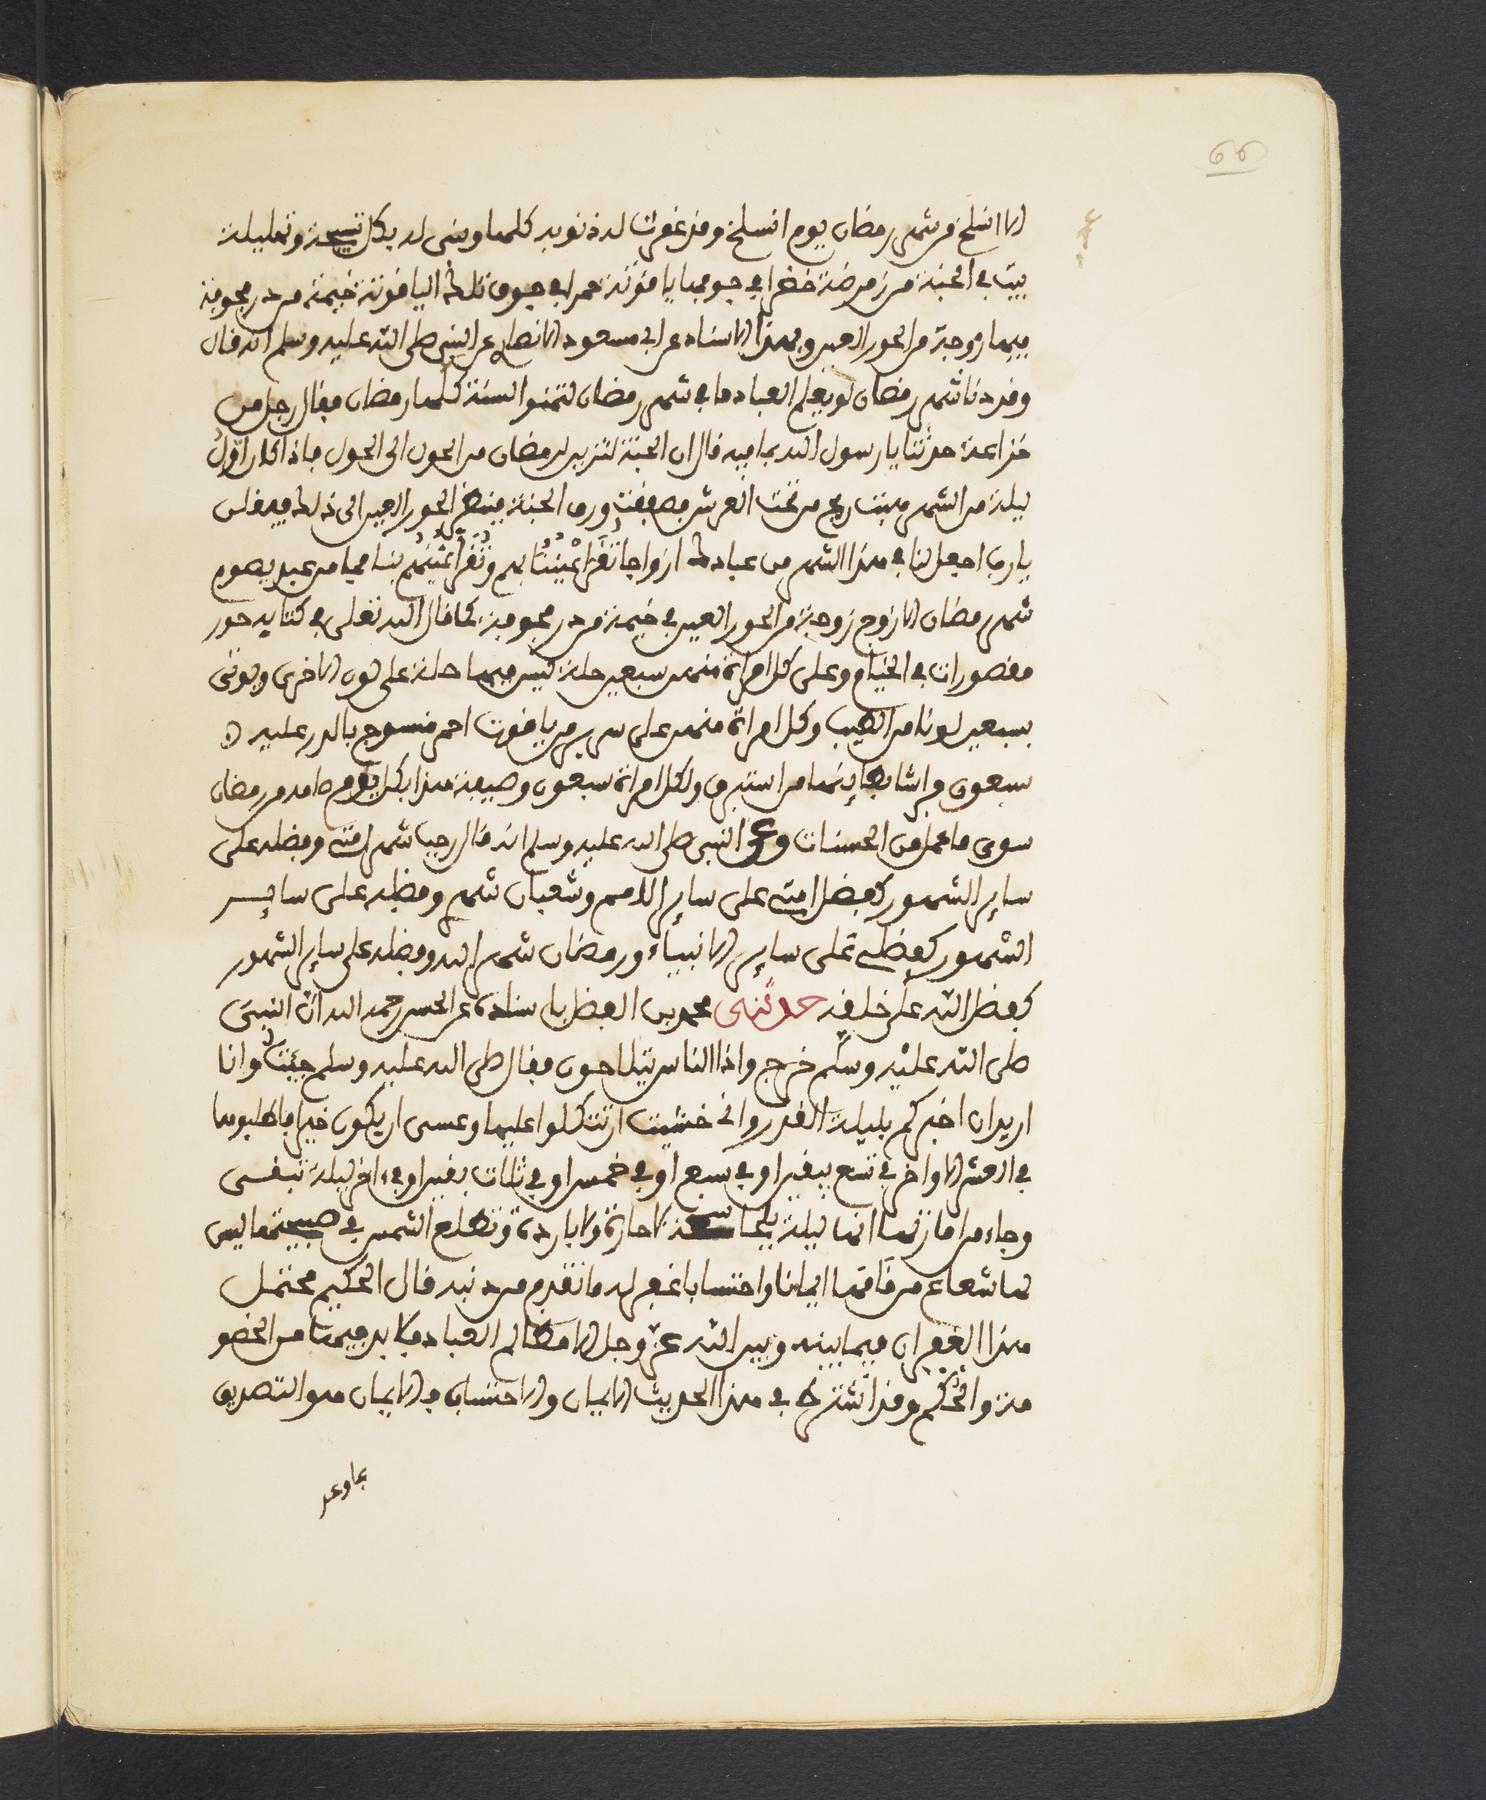 66
الا انسلخ من شهر رمضان يوم انسلخ وقد غفرت له ذنوبه كلها وبنى له بكل تسبيحة وتهليلة
بيت في الجنة من زمردة خضرا في جوفها ياقوتة حمرا في جوف تلك الياقوتة خيمة من در مجوفة
فيها زوجة من الحور العين وبهذا الاسناد عن ابي مسعود الانصاري عن النبي صلى الله عليه وسلم انه قال
وقد دنا شهر رمضان لو يعلم العباد ما في شهر رمضان لتمنوا السنة كلها رمضان فقال رجل من
خزاعة حدثنا يا رسول الله بما فيه قال ان الجنة لتزين لرمضان من الحول الى الحول فاذا كان اول
ليلة من الشهر هبت ريح من تحت العرش فصفقت ورق الجنة فينظر الحور العين الى ذلك فيقلن
يا رب اجعل لنا في هذا الشهر من عبادك ازواجا تقر اعيننا بهم وتقر اعينهم بنا فما من عبد يصوم
شهر رمضان الا زوج زوجة من الحور العين في خيمة من در مجوفة كما قال الله تعلى في كتابه حور
مقصورات في الخيام وعلى كل امراة منهن سبعين حلة ليس فيها حلة على لون الاخرى ويوتى
بسبعين لونا من الطيب وكل امراة منهن على سرير من ياقوت احمر منسوج بالدر عليه
سبعون فراشا بطاينها من استبرق ولكل امراة سبعون وصيفة هذا بكل يوم صامه من رمضان
سوى ما عمل من الحسنات وعن النبي صلى الله عليه وسلم انه قال رجب شهر امتي وفضله على
ساير الشهور كفضل امتي على ساير الامم وشعبان شهري وفضله على ساير
الشهور كفضلي على ساير الانبياء ورمضان شهر الله وفضله على ساير الشهور
كفضل الله على خلقه حدثني محمد بن الفضل باسناده عن الحسن رحمه الله ان النبي
صلى الله عليه وسلم خرج واذا الناس يتلاحون فقال صلى الله عليه وسلم جيت وانا
اريد ان اخبركم بليلة القدر واني خشيت ان تتكلوا عليها وعسى ان يكون خيرا فاطلبوها
في العشر الاواخر في تسع يبقين او في سبع او في خمس او في ثلاث يبقين او في اخر ليلة تبقى
وجاء من اماراتها انها ليلة بلجا سمحة لا حارة ولا باردة وتطلع الشمس في صبيحتها ليس
لها شعاع من قامها ايمانا واحتسابا غفر له ما تقدم من ذنبه قال الحكيم محتمل
هذا الغفران فيما بينه وبين الله عز وجل اما مظالم العباد فلا بد فيها من الخصو
مة والحكم وقد اشترط في هذا الحديث الايمان والاحتساب فالايمان هو التصديق
بما وعد